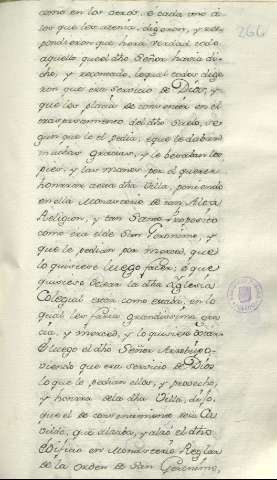 266
como en los otros, é cada uno á
los que les tenia, digeron, y res-
pondieron que hera verdad todo
aquello que el dho Señor havia di-
cho, y recontado, loqual todos dige-
ron que era servicio de Dios, y
que les placia de consentir en el
traspasamiento del dho suelo, se-
gun que le él pedia, é que le daban
muchas gracias, y le besaban los
pies, y las manos por él querer
honrrar aesta dha Villa, poniendo
en ella Monasterio de tan Alta
Religion, y tan Santo Proposito
como era el de San Geronimo, y
que le pedian por merced, que
lo quisiese luego facer; ó que
quisiese dexar la dha Iglesia
Colegial estar como estaba, en lo
qual les faria grandisima gra-
cia, y merced, y lo quisiere
E luego el dho Señor Arzobispo,
viendo que era servicio de Dios
lo que le pedian ellos, y provecho,
y honrra dela dha Villa, dijo,
que el de consentimiento de su Ca-
vildo, que estaba, y alzó el dho
Edificio en Monasterio Reglar
de la orden de San Geronimo,